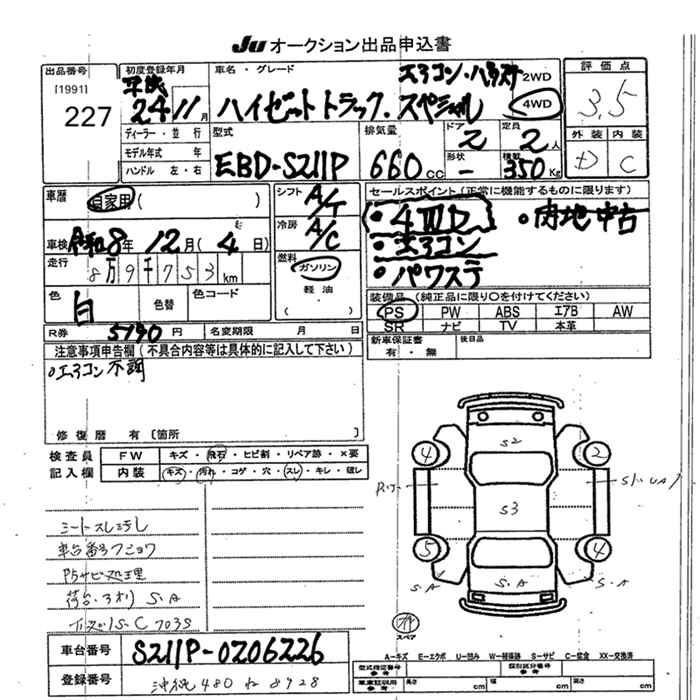 Ju オークション出品申込書
出品番号
[1991]
227
初度登録年月
平成
24年11月
ディーラー・並行
モデル年式 年
ハンドル 左・右
車名・グレード
エアコン・パワステ 2WD
ハイゼットトラック. スペシャル 4WD
型式
EBD-S211P
排気量
660cc
ドア
2
形状
-
定員
2人
積載
350Kg
評価点
3.5
外装 内装
D C
車歴
自家用 ( )
車検 令和8年12月(4日)
走行
8万9千753km
色
白
色替
色コード
R券 5190円
名変期限 月 日
シフト
A/T
冷房
A/C
燃料
ガソリン
軽油
( )
セールスポイント(正常に機能するものに限ります)
・4WD ・内地中古
・エアコン
・パワステ
装備品(純正品に限り○を付けてください)
PS PW ABS エアB AW
SR ナビ TV 本革
新車保証書
有・無
後日品
注意事項申告欄(不具合内容等は具体的に記入して下さい)
○エアコン不調
修復歴 有 〔箇所
検査員
記入欄
FW キズ・飛石・ヒビ割・リペア跡・×要
内装 キズ・汚れ・コゲ・穴・スレ・キレ・破レ
シートスレ汚し
車台番号フショク
防サビ処理
S.A
S2
S3
4
2
5
4
S.A
S.A
S.A
S.A
スペア
A=キズ E=エクボ U=凹み W=補修跡 S=サビ C=腐食 XX=交換済
車台番号
S211P-0206226
登録番号
沖縄480 ね 8928
型式指定番号
参考
類別区分番号
参考
車庫証明用
参考
長さ cm
幅 cm
高さ cm